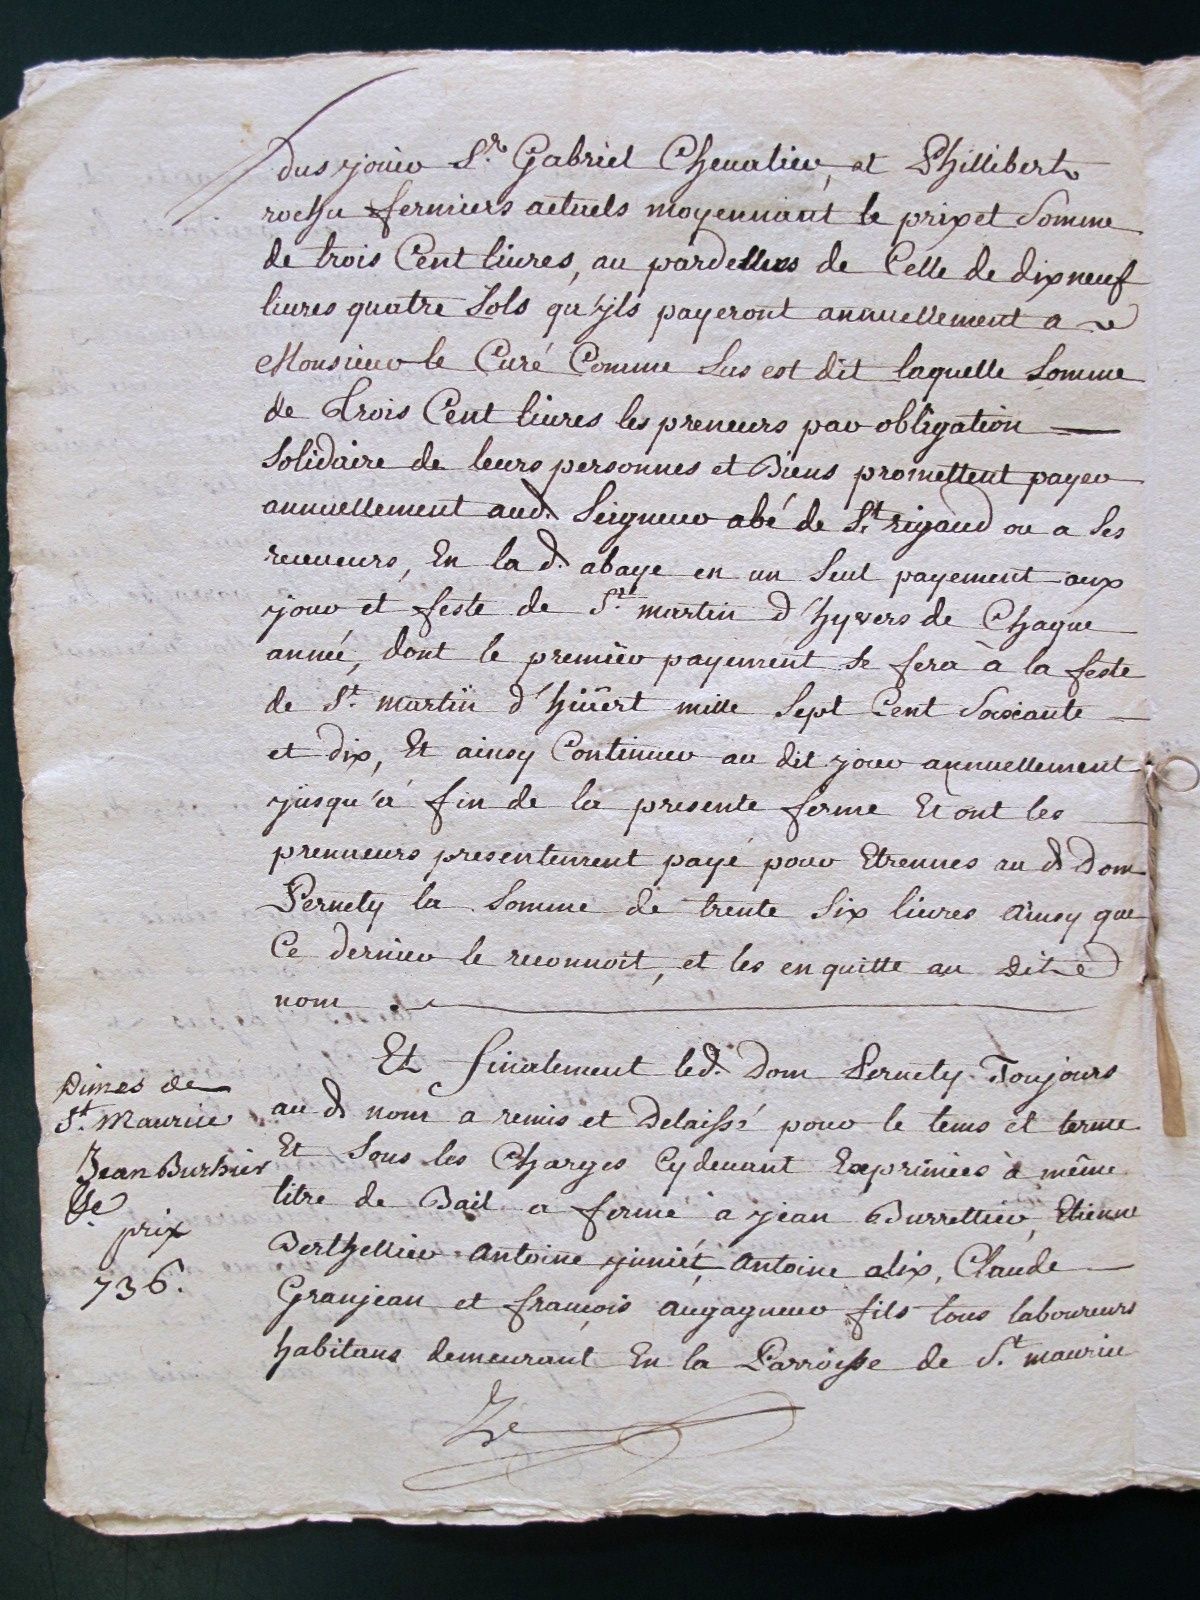 dus jouir Sr. Gabriel Chevalier, et Phillibert
rochu fermiers actuels moyennant le prix et Somme
de trois Cent livres, au pardessus de Celle de dix neuf
livres quatre Sols qu'jls payeront annuellement a
Monsieur le Curé Comme Sus est dit laquelle Somme
de Trois Cent livres les preneurs par obligation
Solidaire de leurs personnes et Biens promettent payer
annuellement aud. Seigneur abé de St. rigaud ou a Ses
receveurs, En la d. abaye en un Seul payement aux
jour et feste de St. martin d'hyvers de Chaque
année, dont le premier payement Se fera à la feste
de St. martin d'hivert mille Sept Cent Soixante
et dix, Et ainsy Continuer au dit jour annuellement
jusqu'à fin de la presente ferme Et ont les
prenneurs presentement payé pour Etrennes au d. Dom
Pernety la Somme de trente Six livres Ainsy que
Ce dernier le reconnoit, et les en quitte au Dit
nom.
Et finalement led. Dom Pernety Toujours
au d. nom a remis et Delaissé pour le tems et terme
Et Sous les Charges Cydevant Exprimées à même
titre de Bail a ferme à jean Burrellier, Etienne
Berthellier Antoine juniét, Antoine alix, Claude
Granjean et françois augagneur fils tous laboureurs
habitans demeurant En la Parroisse de St. maurice
Dimes de
St. Maurice
Jean
prix
736.